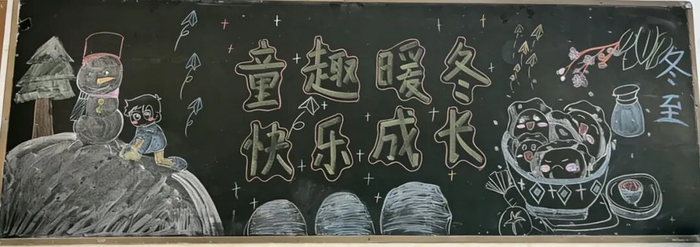 童趣暖冬
快乐成长
冬至